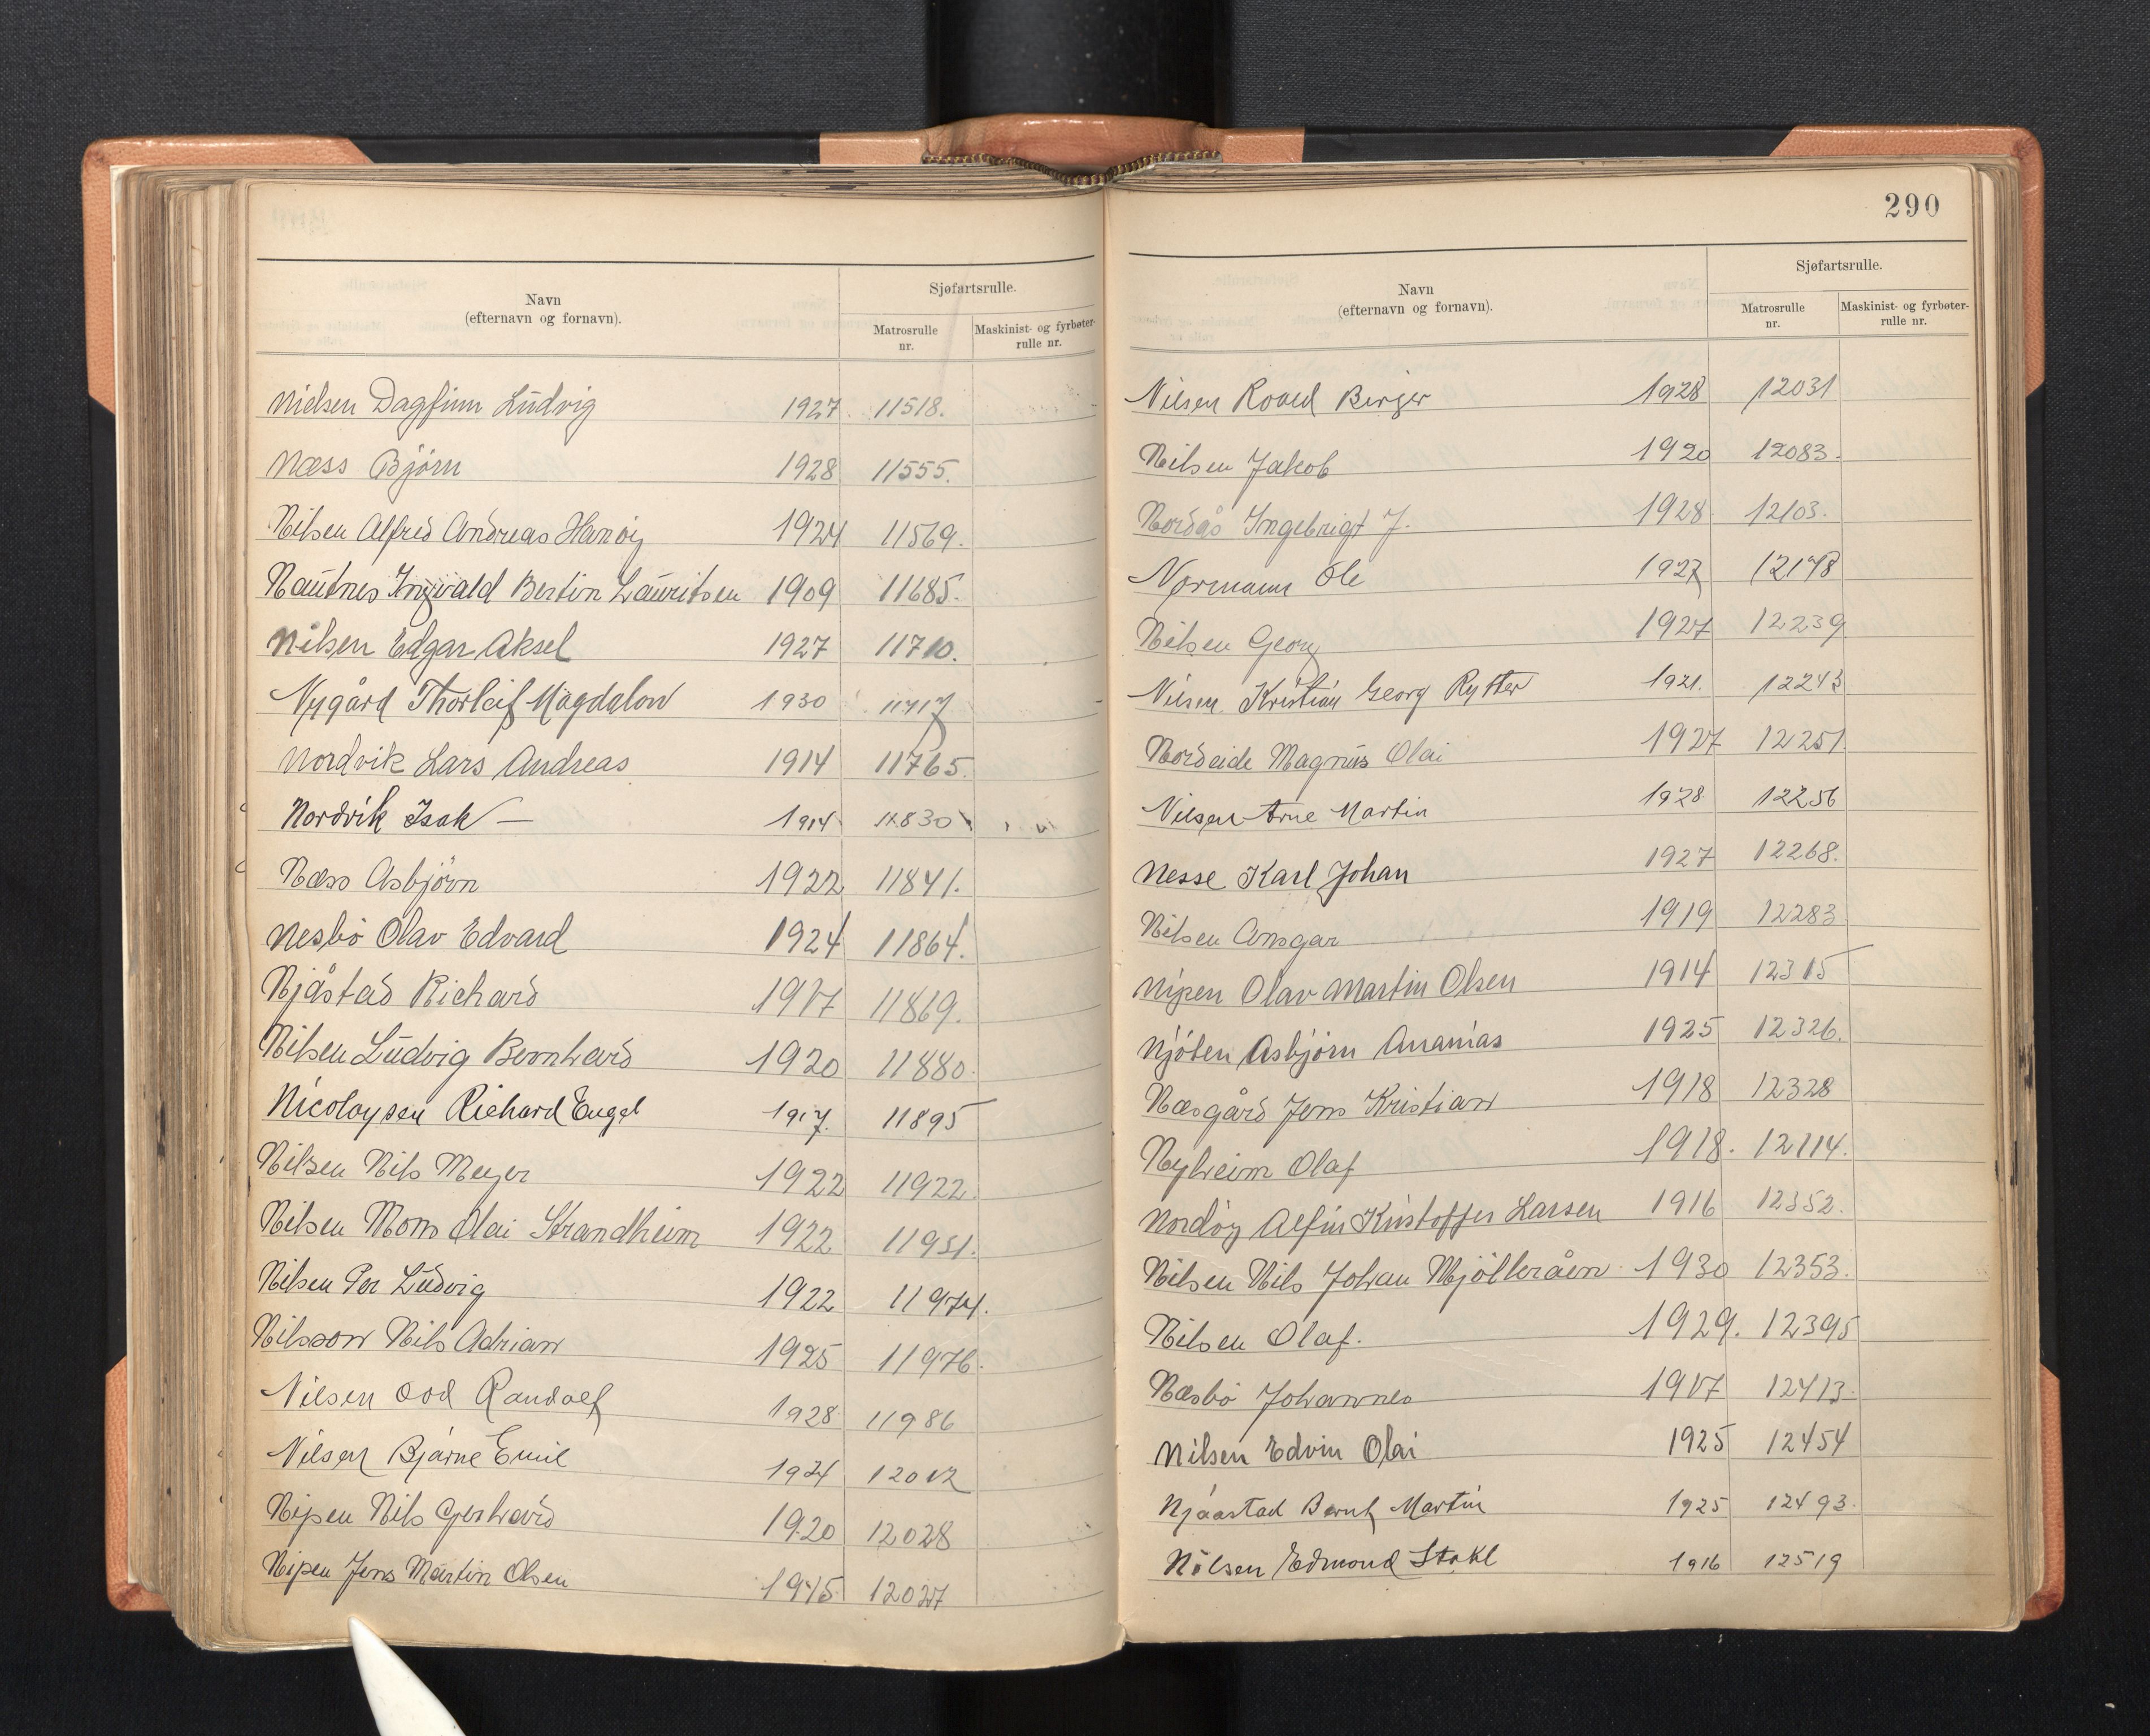 Navn
(efternavn og fornavn).
Sjøfartsrulle.
Matrosrulle
nr.
Maskinist- og fyrbøter-
rulle nr.
Nielsen Dagfinn Ludvig 1927. 11518.
Næss Björn 1928 11555.
Nilsen Alfred Andreas Hanöy 1924 11569.
Nautnes Ingvald Bertin Lauritsen 1909 11685.
Nilsen Edgar Aksel 1927 11710.
Nygård Thorleif Magdalon 1930 11717
Nordvik Lars Andreas 1914 11765.
Nordvik Isak — 1914 11830
Næss Asbjörn 1922 11841.
Nesbö Olav Edvard 1924 11864.
Njåstad Richard 1917 11869.
Nilsen Ludvig Bernhard 1920 11880.
Nicolaysen Richard Engel 1917. 11895
Nilsen Nils Meyer 1922 11922.
Nilsen Mons Olai Strandheim 1922 11951.
Nilsen Per Ludvig 1922 11974.
Nilsson Nils Adrian 1925 11976.
Nilsen Odd Randolf 1928 11986
Nilsen Bjarne Emil 1924 12012
Nipen Nils Gerhard 1920 12028
Nipen Jens Martin Olsen 1915 12027
290
Navn
(efternavn og fornavn).
Sjøfartsrulle.
Matrosrulle
nr.
Maskinist- og fyrbøter-
rulle nr.
Nilsen Roald Birger 1928 12031
Nilsen Jakob 1920 12083.
Nordås Ingebrigt J. 1928 12103.
Normann Ole 1927 12178
Nilsen Georg 1927 12239
Nilsen Kristian Georg Rytter 1921. 12243
Nordeide Magnus Olai 1927 12251.
Nilsen Arne Martin 1928 12256
Nesse Karl Johan 1927 12268.
Nilsen Ansgar 1919 12283.
Nipen Olav Martin Olsen 1914 12315
Njöten Asbjörn Ananias 1925 12326.
Næsgård Jens Kristian 1918 12328
Nyheim Olaf 1918. 12114.
Nordöy Alfin Kristoffer Larsen 1916 12352.
Nilsen Nils Johan Mjölleråen 1930 12353.
Nilsen Olaf. 1929. 12395
Næsbö Johannes 1917 12413.
Nilsen Edvin Olai 1925 12454
Njåastad Bernh Martin 1925 12493.
Nilsen Edmond Stokl 1916 12519